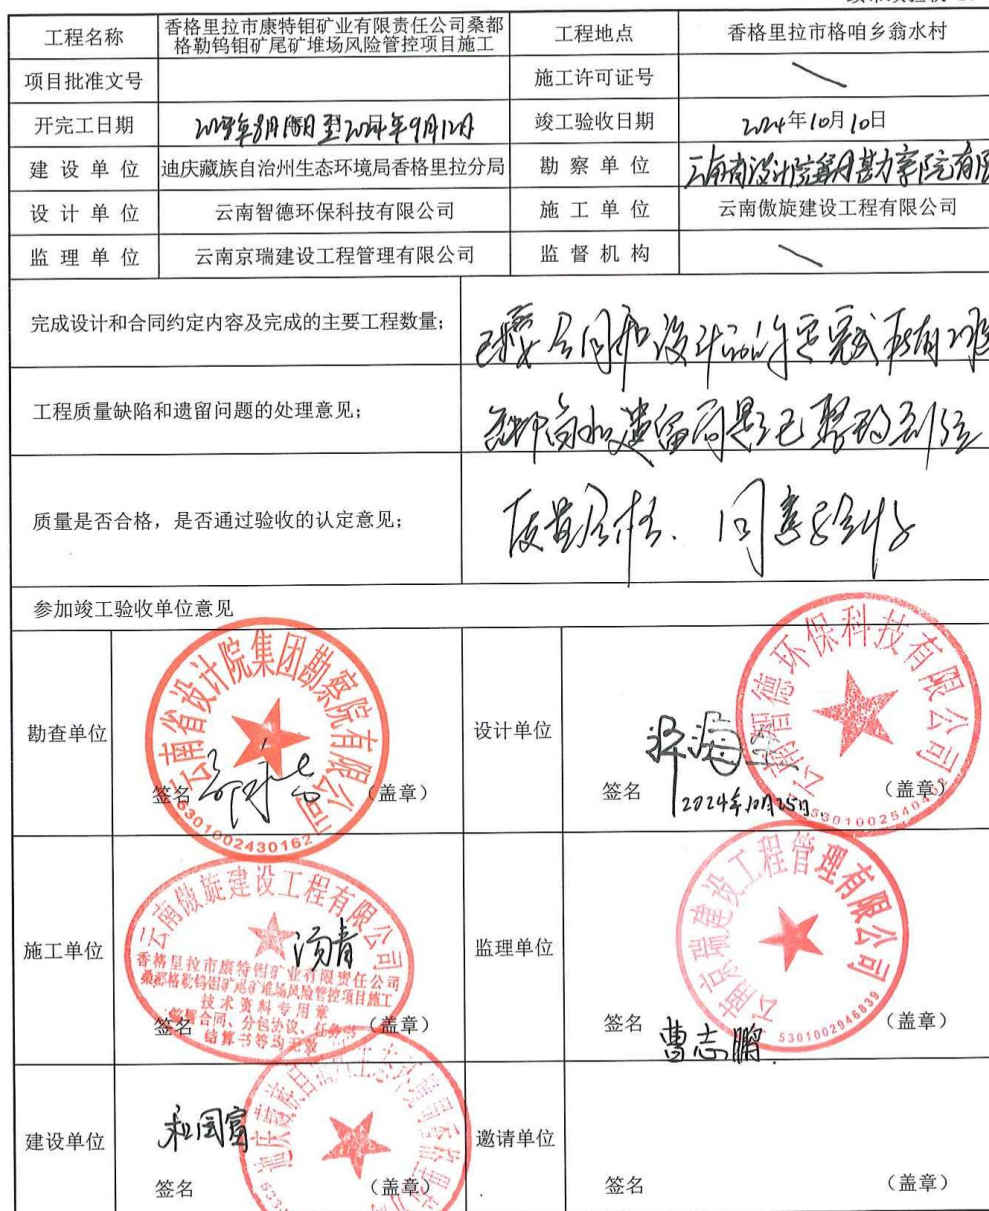 工程名称 香格里拉市康特钼矿业有限责任公司桑都格勒钨钼矿尾矿堆场风险管控项目施工 工程地点 香格里拉市格咱乡翁水村
项目批准文号 施工许可证号
开完工日期 至2024年9月12日 竣工验收日期 2024年10月10日
建设单位 迪庆藏族自治州生态环境局香格里拉分局 勘察单位 云南省设计院集团勘察院有限
设计单位 云南智德环保科技有限公司 施工单位 云南傲旋建设工程有限公司
监理单位 云南京瑞建设工程管理有限公司 监督机构
完成设计和合同约定内容及完成的主要工程数量;
工程质量缺陷和遗留问题的处理意见; 缺陷和遗留问题已整改到位
质量是否合格，是否通过验收的认定意见; 质量合格、同意验收
参加竣工验收单位意见
勘查单位 云南省设计院集团勘察院有限公司 签名 (盖章) 5301002430162
设计单位 云南智德环保科技有限公司 签名 (盖章) 2024年10月25日
施工单位 云南傲旋建设工程有限公司 汤青
香格里拉市康特钼矿业有限责任公司
桑都格勒钨钼矿尾矿堆场风险管控项目施工
技术资料专用章
合同、分包协议、任务书
结算书等均无效
签名 (盖章)
监理单位 云南京瑞建设工程管理有限公司 签名 曹志鹏 (盖章) 5301002946839
建设单位 和国富 签名 (盖章)
邀请单位 签名 (盖章)